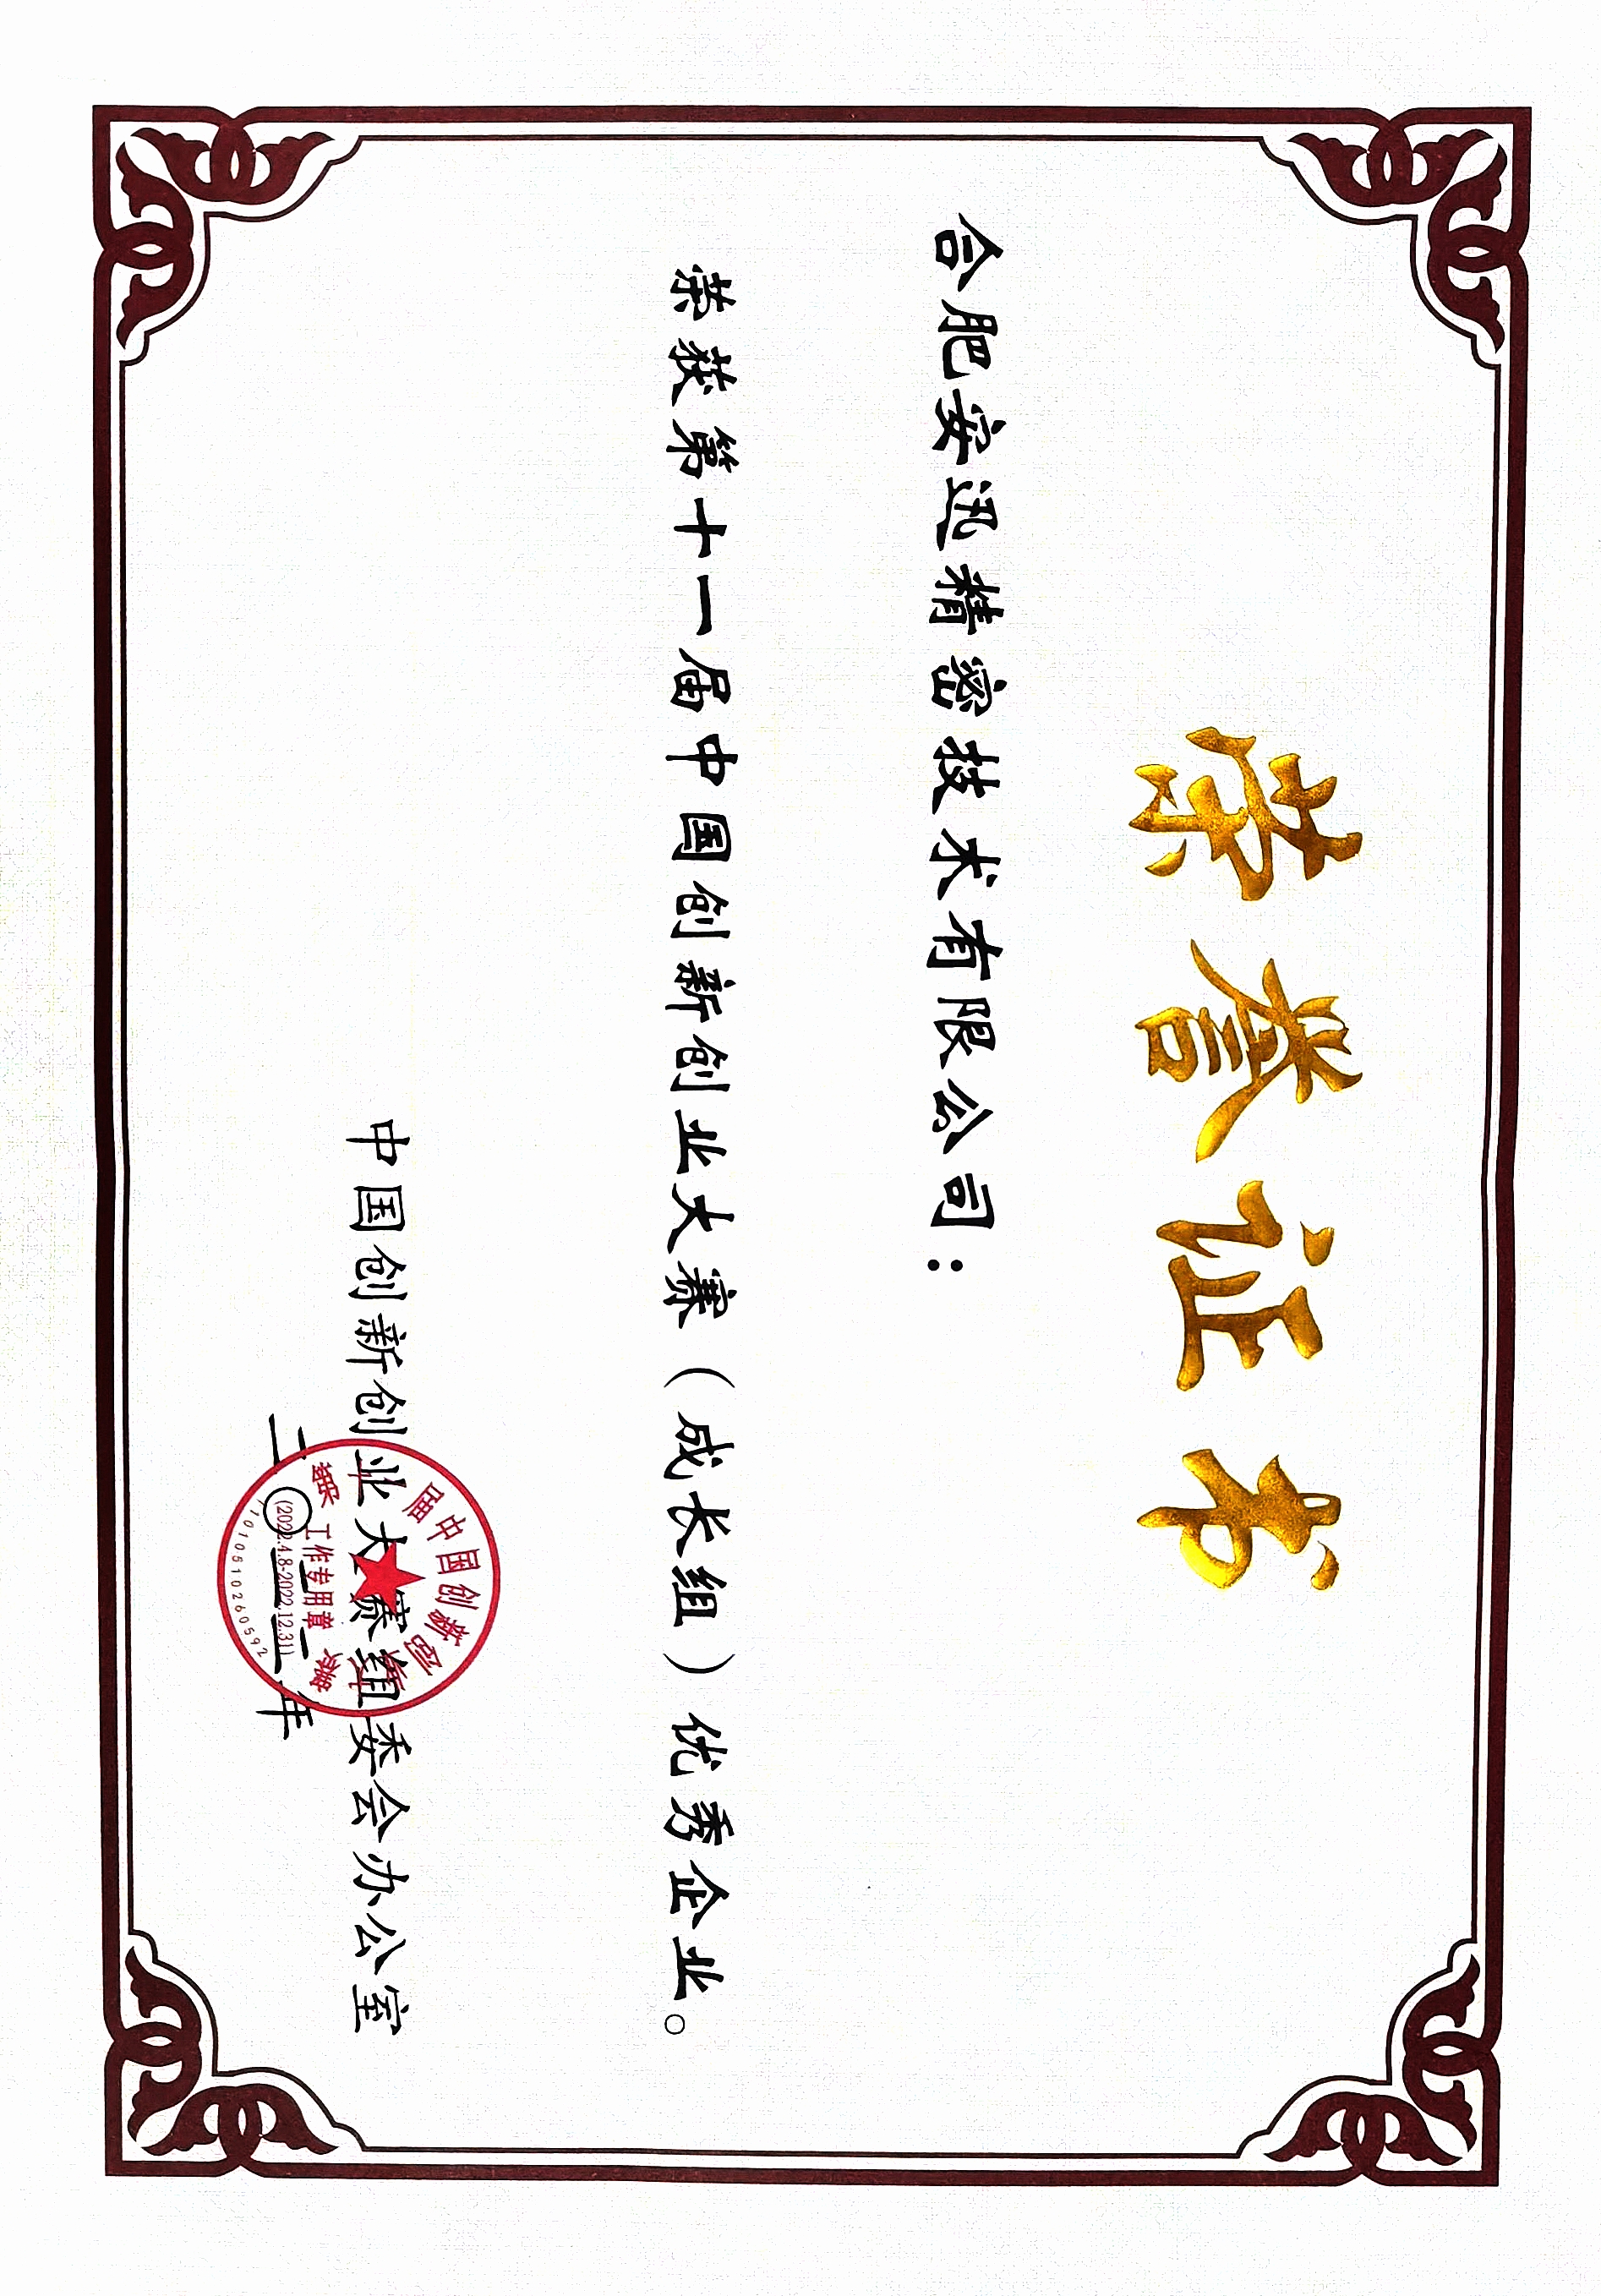 荣誉证书
合肥安迅精密技术有限公司：
荣获第十一届中国创新创业大赛（成长组）优秀企业。
中国创新创业大赛组委会办公室
二〇二二年
第十一届中国创新创业大赛
工作专用章
(2022.4.8-2022.12.31)
11010510260592